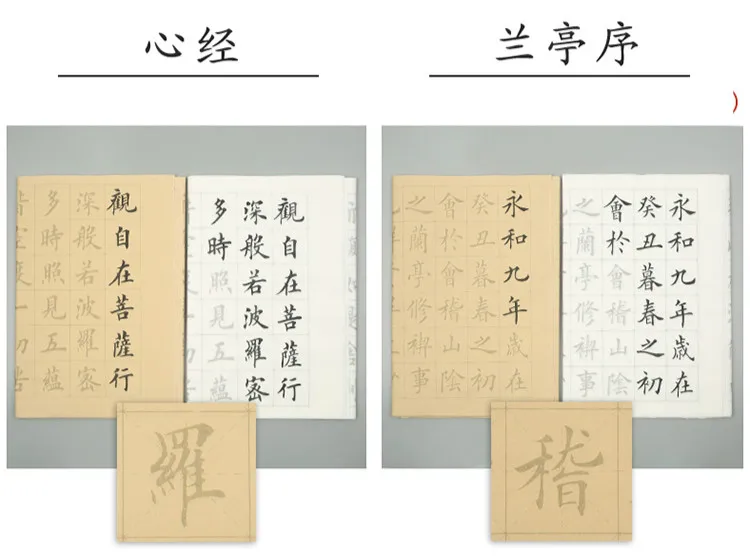 心经
兰亭序
)
觀自在菩薩行
深般若波羅密
多時照見五蘊
觀自在菩薩行
深般若波羅密
多時照見五蘊
永和九年歲在
癸丑暮春之初
會於會稽山陰
之蘭亭修禊事
永和九年歲在
癸丑暮春之初
會於會稽山陰
之蘭亭修禊事
羅
稽